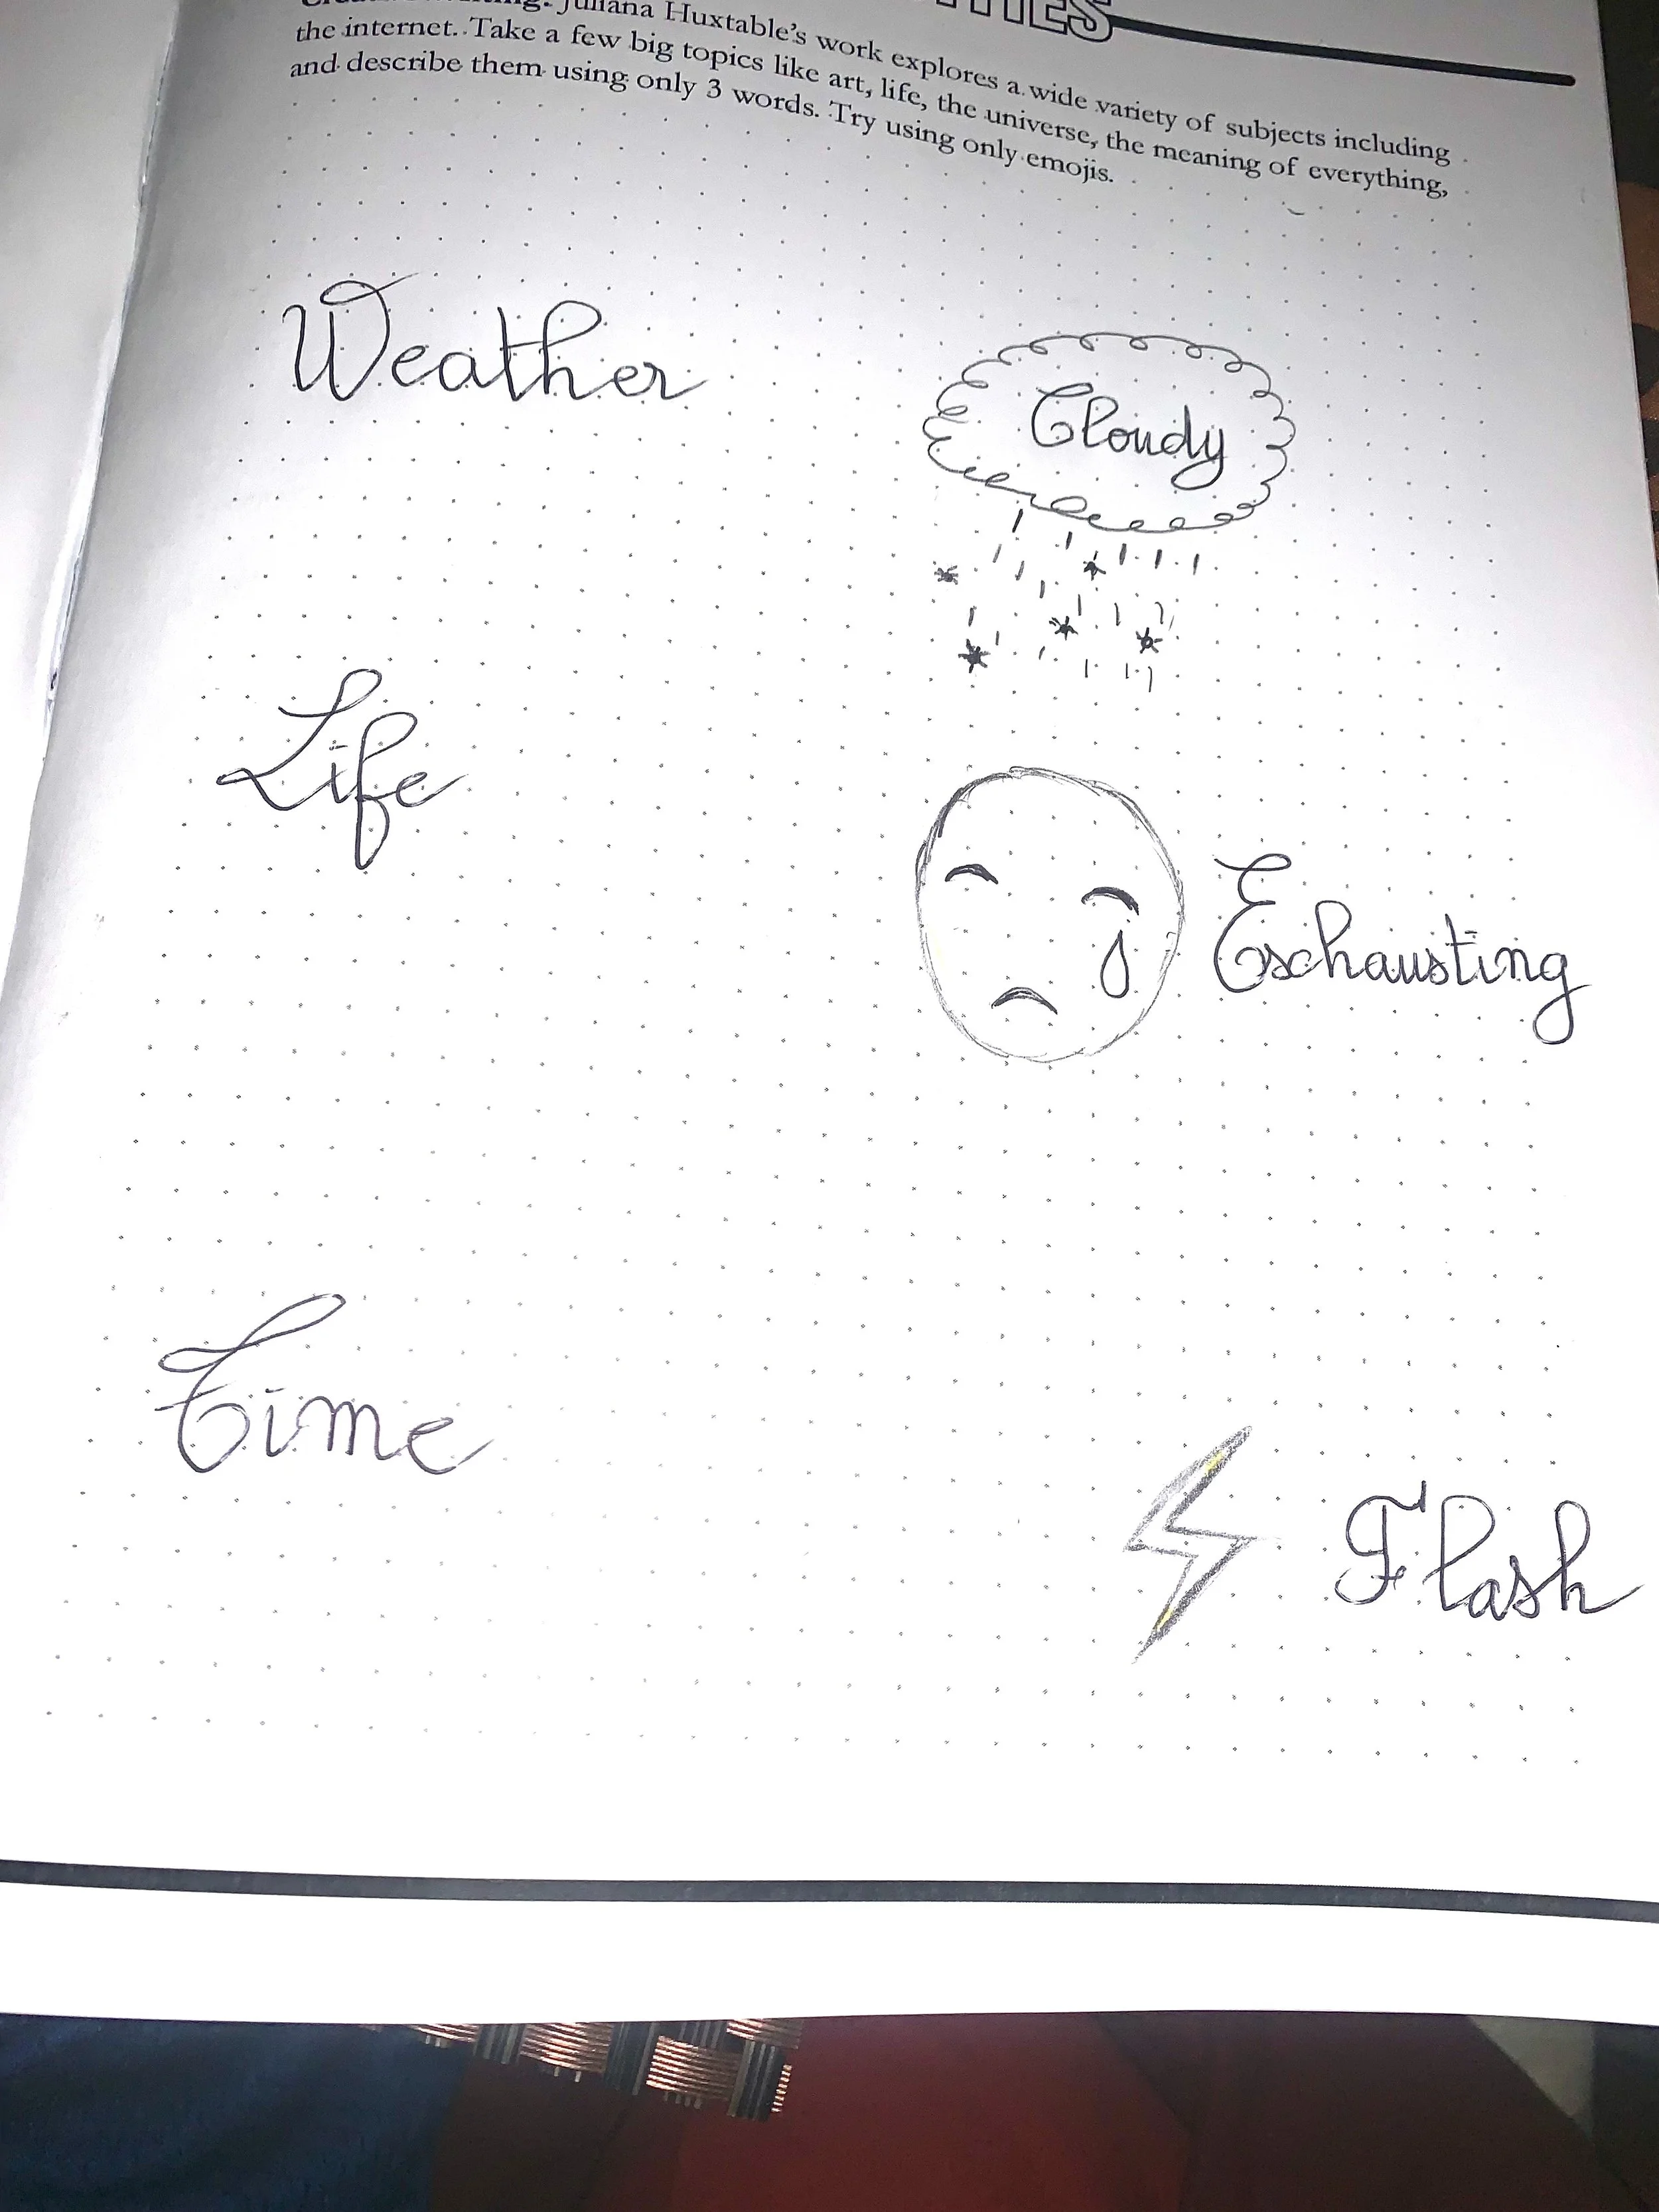 Juliana Huxtable's work explores a wide variety of subjects including
the internet. Take a few big topics like art, life, the universe, the meaning of everything,
and describe them using only 3 words. Try using only emojis.
Weather
Cloudy
Life
Exchausting
Time
Flash